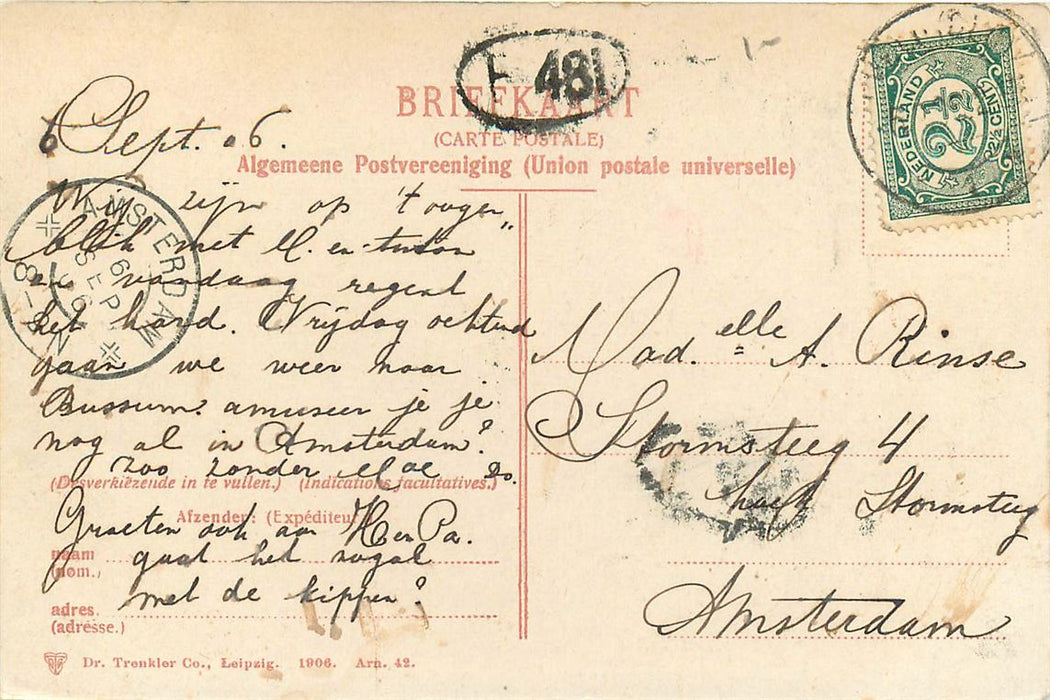 F 481
BRIEFKAART
(CARTE POSTALE)
Algemeene Postvereeniging (Union postale universelle)
NEDERLAND
2½
2½ CENT
6 Sept. 06.
AMSTERDAM
6 SEP
06
8-9 N
Wij zijn op 't oogen„
blik" met M. en
en vandaag regent
het hard. Vrijdag ochtend
gaan we weer naar
Bussum. amuseer je je
nog al in Amsterdam?
zoo zonder
(Desverkiezende in te vullen.) (Indications facultatives.)
Afzender: (Expéditeur)
Groeten ook aan M en Pa.
naam
(nom.)
gaat het nogal
met de kippen?
adres.
(adresse.)
Dr. Trenkler Co., Leipzig. 1906. Am. 42.
Mad.elle A. Rinse
Stormsteeg 4
hoek Stormsteeg
Amsterdam